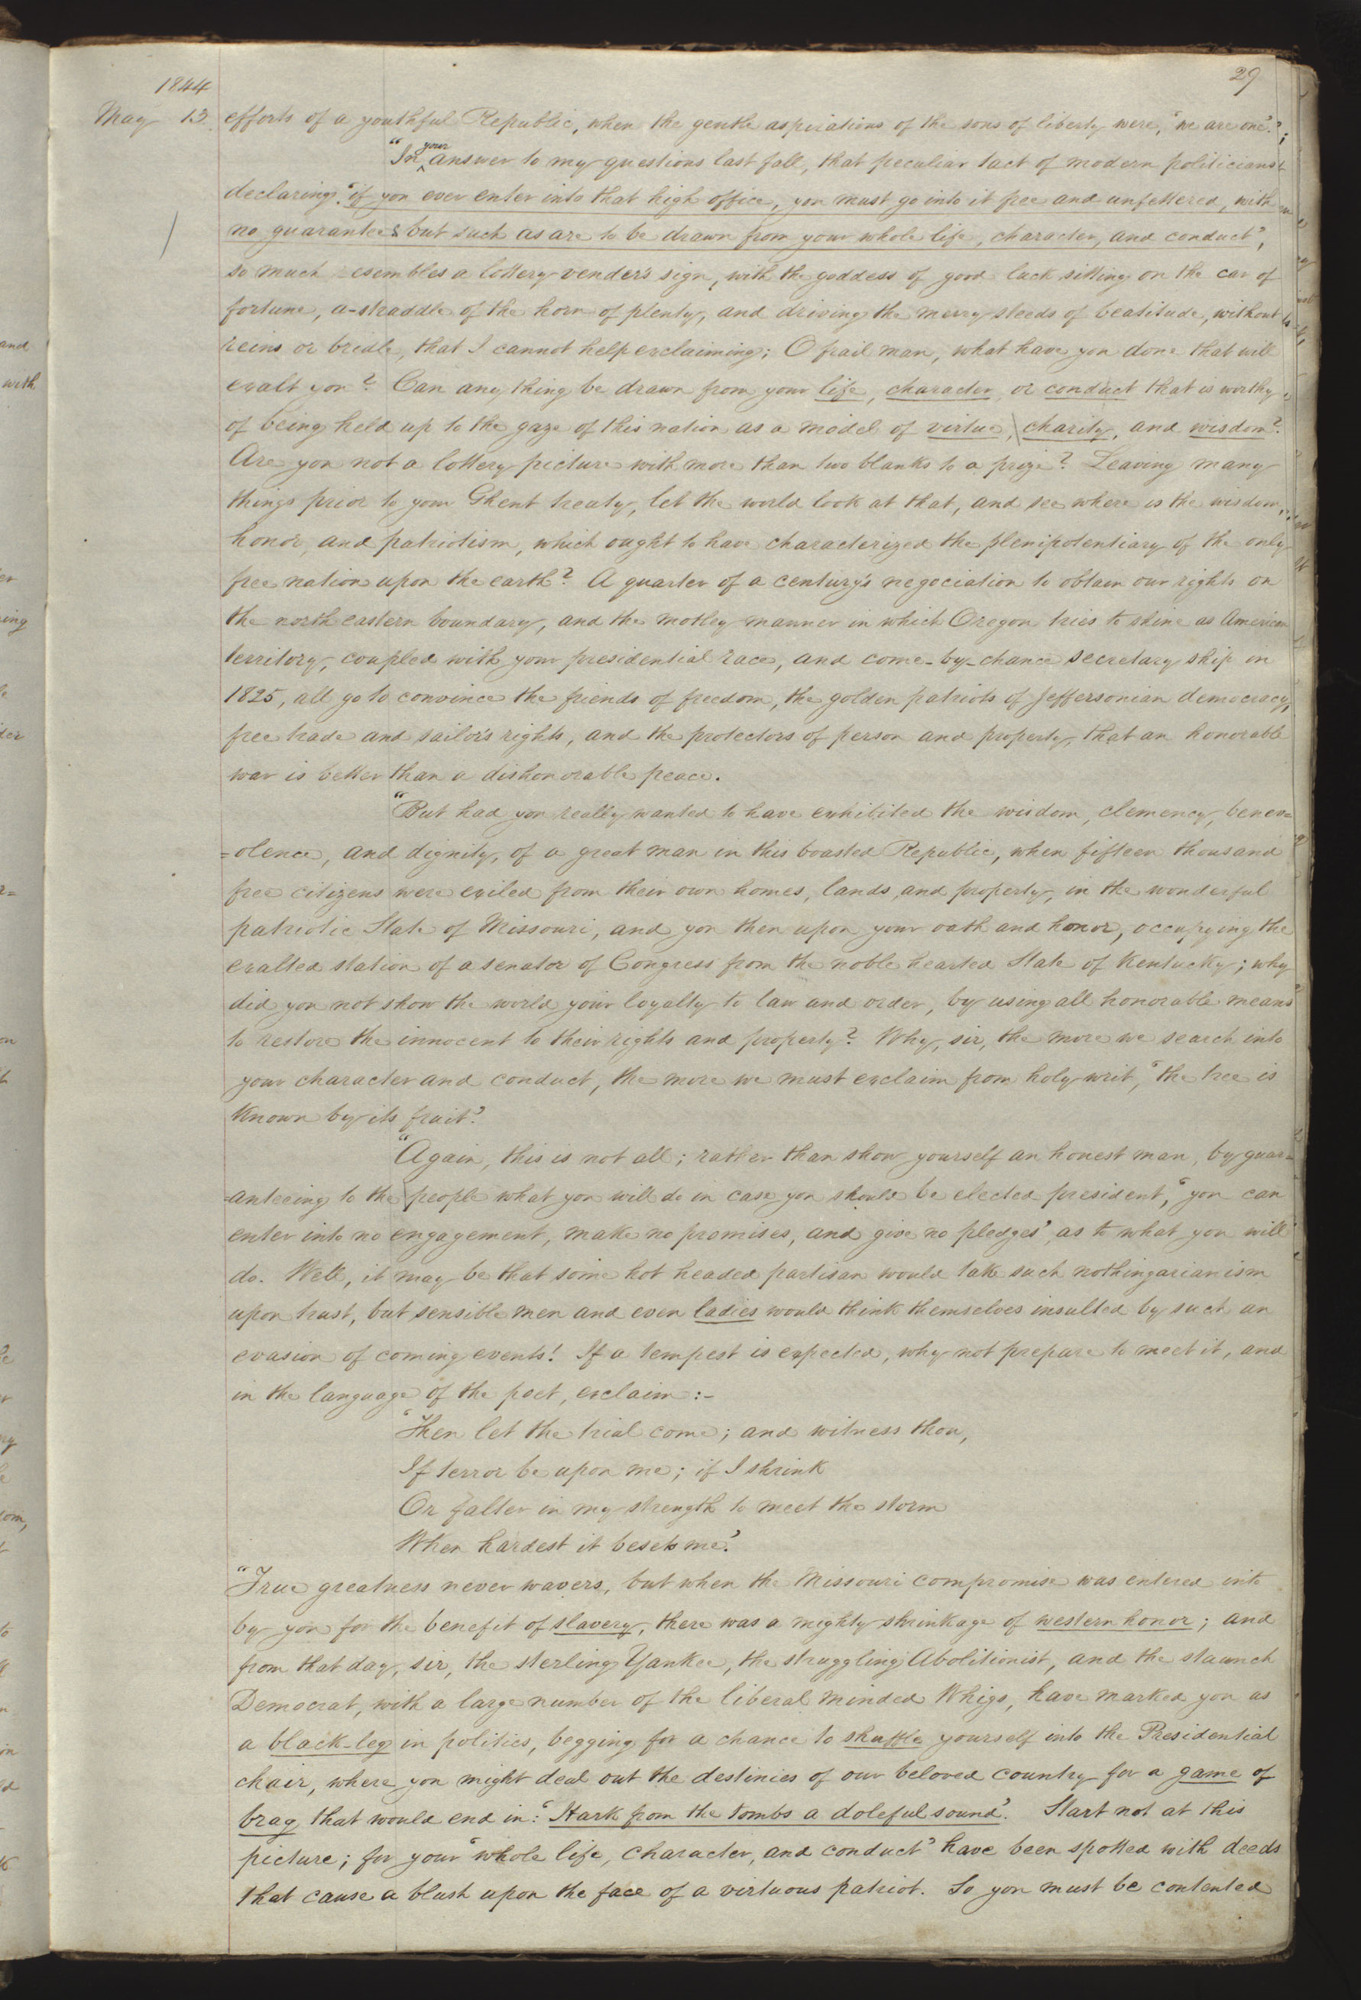 29
1844
May 13. efforts of a youthful Republic, when the gentle aspirations of the sons of liberty were, "we are one"?
"In your answer to my questions last fall, that peculiar tact of modern politicians
declaring, 'if you ever enter into that high office, you must go into it free and unfettered, with
no guarantees but such as are to be drawn from your whole life, character, and conduct',
so much resembles a lottery-vender's sign, with the goddess of good luck sitting on the car of
fortune, a-straddle of the horn of plenty, and driving the merry steeds of beatitude, without
reins or bridle, that I cannot help exclaiming; O frail man, what have you done that will
exalt you? Can any thing be drawn from your life, character, or conduct that is worthy
of being held up to the gaze of this nation as a model of virtue, charity, and wisdom?
Are you not a lottery picture with more than two blanks to a prize? Leaving many
things prior to your Ghent treaty, let the world look at that, and see where is the wisdom,
honor, and patriotism, which ought to have characterized the plenipotentiary of the only
free nation upon the earth? A quarter of a century's negociation to obtain our rights on
the north eastern boundary, and the motley manner in which Oregon tries to shine as American
territory, coupled with your presidential race, and come-by-chance secretary ship in
1825, all go to convince the friends of freedom, the golden patriots of Jeffersonian democracy,
free trade and sailor's rights, and the protectors of person and property, that an honorable
war is better than a dishonorable peace.
"But had you really wanted to have exhibited the wisdom, clemency, benev=
=olence, and dignity, of a great man in this boasted Republic, when fifteen thousand
free citizens were exiled from their own homes, lands, and property, in the wonderful
patriotic State of Missouri, and you then upon your oath and honor, occupying the
exalted station of a senator of Congress from the noble hearted State of Kentucky; why
did you not show the world your loyalty to law and order, by using all honorable means
to restore the innocent to their rights and property? Why, sir, the more we search into
your character and conduct, the more we must exclaim from holy writ, 'the tree is
known by its fruit.'
"Again, this is not all; rather than show yourself an honest man, by guar=
=anteeing to the people what you will do in case you should be elected president, 'you can
enter into no engagement, make no promises, and give no pledges' as to what you will
do. Well, it may be that some hot headed partisan would take such nothingarianism
upon trust, but sensible men and even ladies would think themselves insulted by such an
evasion of coming events! If a tempest is expected, why not prepare to meet it, and
in the language of the poet, exclaim:-
'Then let the trial come; and witness thou,
If terror be upon me; if I shrink
Or falter in my strength to meet the storm
When hardest it besets me.'
"True greatness never wavers, but when the Missouri compromise was entered into
by you for the benefit of slavery, there was a mighty shrinkage of western honor; and
from that day, sir, the sterling Yankee, the struggling Abolitionist, and the staunch
Democrat, with a large number of the liberal minded Whigs, have marked you as
a black-leg in politics, begging for a chance to shuffle yourself into the Presidential
chair, where you might deal out the destinies of our beloved country for a game of
brag that would end in: 'Hark from the tombs a doleful sound'. Start not at this
picture; for your 'whole life, character, and conduct' have been spotted with deeds
that cause a blush upon the face of a virtuous patriot. So you must be contented